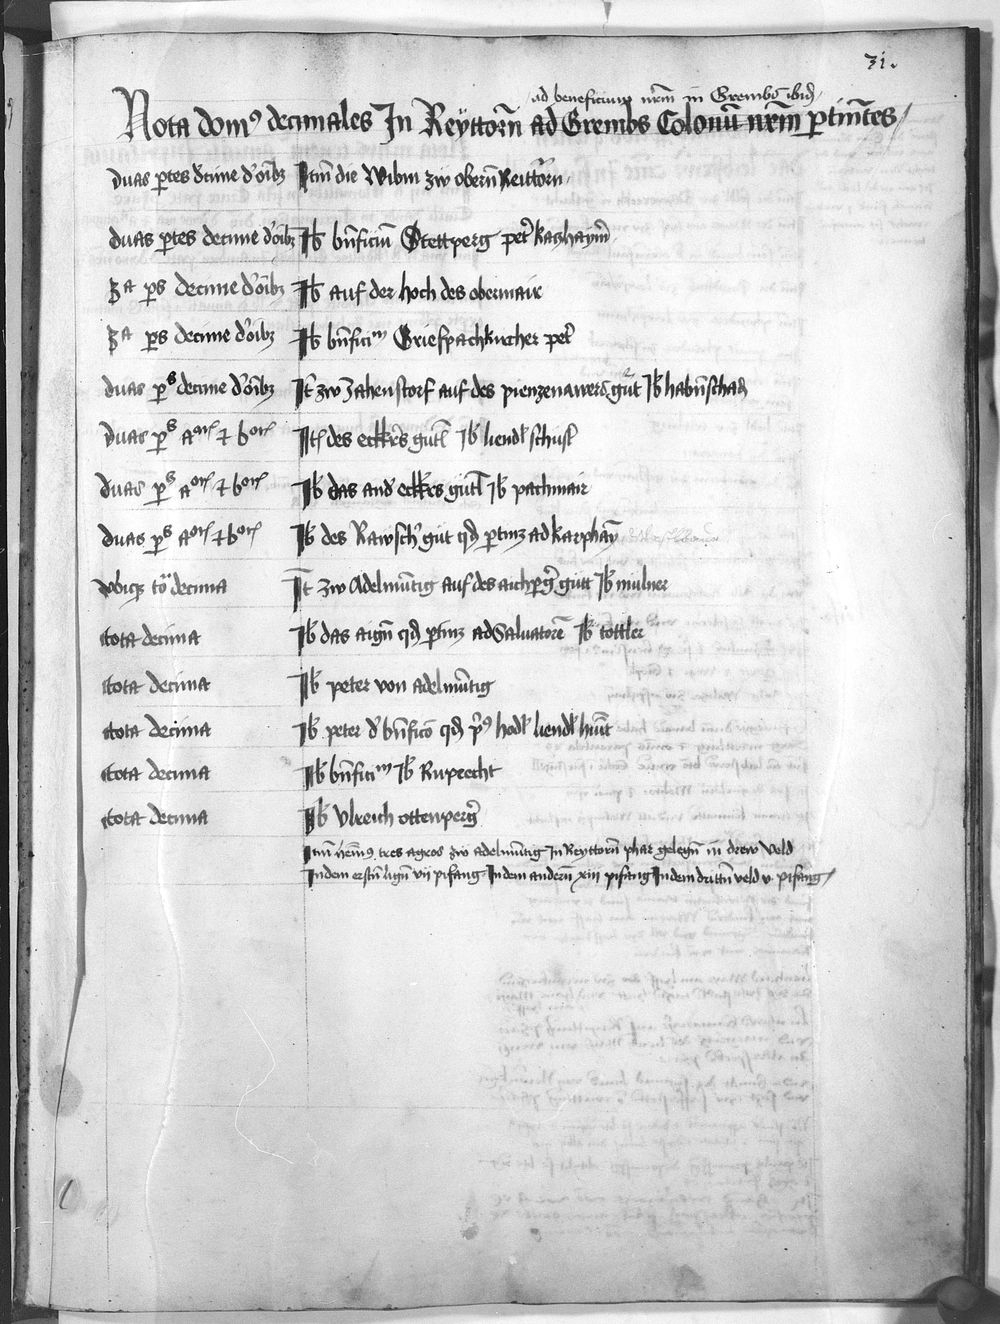 31.
ad beneficium nrm in Grembs ibid
Nota dom9 decimales In Reyttorn ad Grembs Colonu nrm ptinetes
duas ptes dcime d'oibz Itm die Wibm zw obern Reittorn
duas ptes decime d'oibz It bnficiu Stettperg pet kashaym
3a ps decime d'oibz It auf der hoch des obermair
3a ps decime d'oibz It bnficim Griespachkircher pet
duas ps decime d'oibz It zw Zahenstorf auf des pienzenawers gut It
duas ps aorf & borf It des eckkers gutl It liendl schusl
duas ps aorf & borf It das and eckkers gutl It pachmair
duas ps aorf & borf It des Rawsch gut qd ptinz ad karphay
tota decima It zw Adelmutig auf des aichpgs gutt It mulner
tota decima It das aign qd ptinz ad Saluatore It tottler
tota decima It peter von adelmutig
tota decima It peter d' bnfico qd p9 hodl liendl hunt
tota decima It bnficim It Ruprecht
tota decima It Vlreich ottenperg
Itm hem9 tres agros zw adelmutig In Reyttorn phar gelegn in drew Veld
In dem erstn lign vij pifang In dem andern xiij pifang In dem drittn veld v pifang